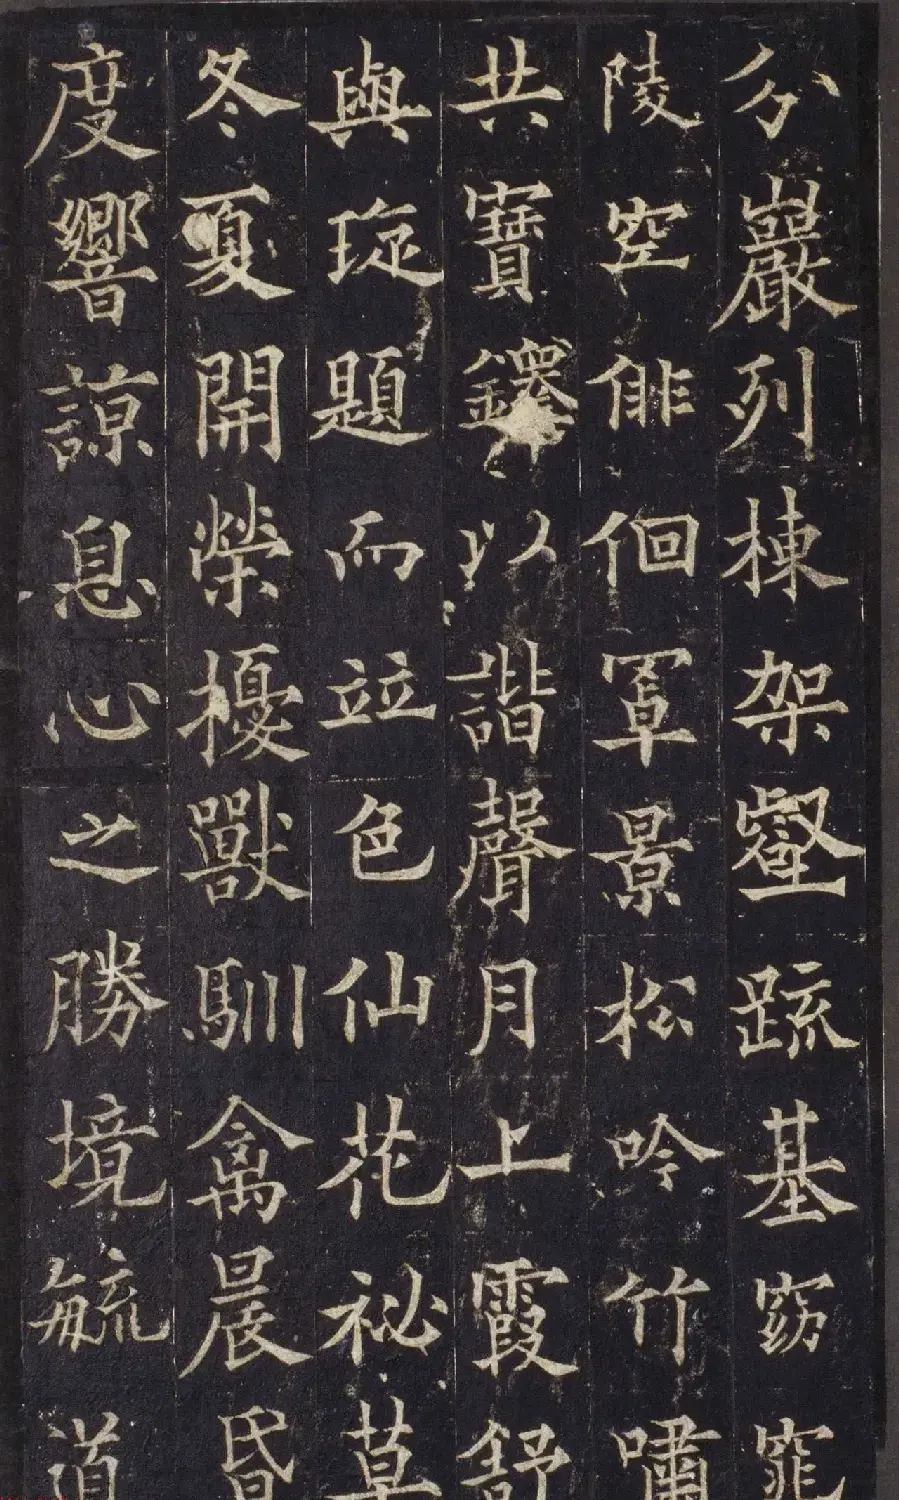 分巖列棟架壑疏基窈窕
陵空俳佪罩景松吟竹嘯
共寶鐸以諧聲月上霞舒
與琁題而並色仙花祕草
冬夏開榮擾獸馴禽晨昏
度響諒息心之勝境毓道